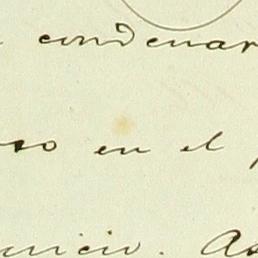 condenar
so en el
nicio. As